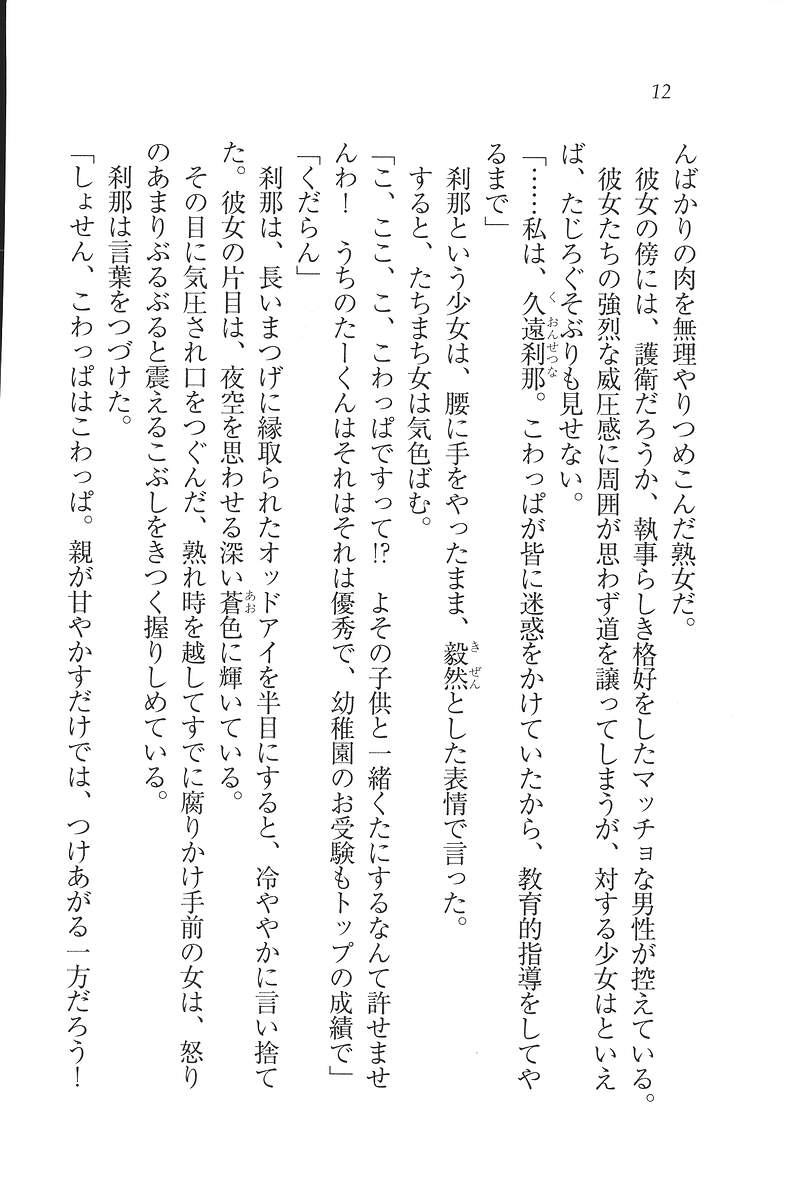 12
んばかりの肉を無理やりつめこんだ熟女だ。
彼女の傍には、護衛だろうか、執事らしき格好をしたマッチョな男性が控えている。
彼女たちの強烈な威圧感に周囲が思わず道を譲ってしまうが、対する少女はといえ
ば、たじろぐそぶりも見せない。
「……私は、久遠刹那。こわっぱが皆に迷惑をかけていたから、教育的指導をしてや
くおんせつな
るまで」
刹那という少女は、腰に手をやったまま、毅然とした表情で言った。
きぜん
すると、たちまち女は気色ばむ。
「こ、ここ、こ、こわっぱですって!?　よその子供と一緒くたにするなんて許せませ
んわ！　うちのたーくんはそれはそれは優秀で、幼稚園のお受験もトップの成績で」
「くだらん」
刹那は、長いまつげに縁取られたオッドアイを半目にすると、冷ややかに言い捨て
た。彼女の片目は、夜空を思わせる深い蒼色に輝いている。
あお
その目に気圧され口をつぐんだ、熟れ時を越してすでに腐りかけ手前の女は、怒り
のあまりぶるぶると震えるこぶしをきつく握りしめている。
刹那は言葉をつづけた。
「しょせん、こわっぱはこわっぱ。親が甘やかすだけでは、つけあがる一方だろう！